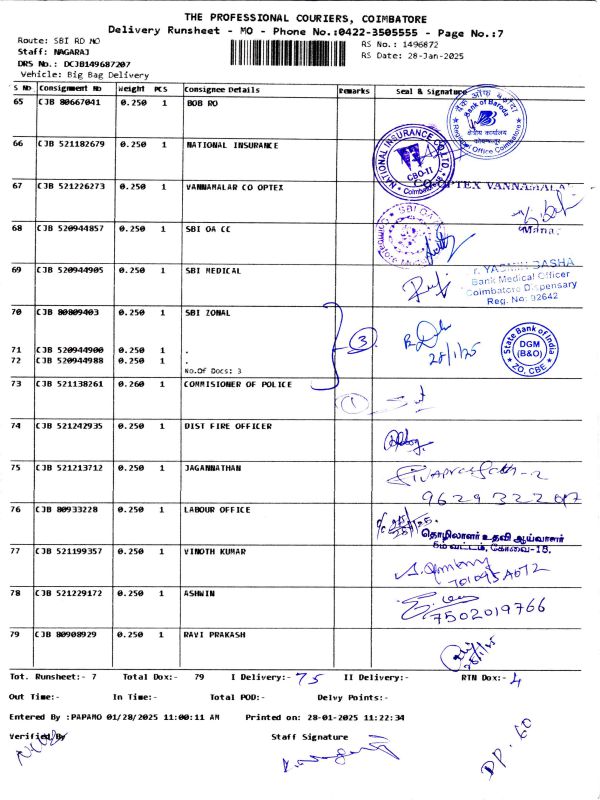 THE PROFESSIONAL COURIERS, COIMBATORE
Delivery Runsheet - MO - Phone No.:0422-3505555 - Page No.:7
Route: SBI RD MO
Staff: NAGARAJ
DRS No.: DCJB149687207
Vehicle: Big Bag Delivery
RS No.: 1496872
RS Date: 28-Jan-2025
S No Consignment No Weight PCS Consignee Details Remarks Seal & Signature
65 CJB 80667041 0.250 1 BOB RO
Bank of Baroda
बैंक ऑफ़ बड़ौदा
क्षेत्रीय कार्यालय
Regional Office Coimbatore
66 CJB 521182679 0.250 1 NATIONAL INSURANCE
NATIONAL INSURANCE CO. LTD.
CBO-II
Coimbatore
67 CJB 521226273 0.250 1 VANNAMALAR CO OPTEX
CO-OPTEX VANNAMALA
68 CJB 520944857 0.250 1 SBI OA CC
SBI OA
69 CJB 520944905 0.250 1 SBI MEDICAL
YASMIN BASHA
Bank Medical Officer
Coimbatore Dispensary
Reg. No: 92642
70 CJB 80809403 0.250 1 SBI ZONAL
71 CJB 520944900 0.250 1 .
72 CJB 520944988 0.250 1 .
No.Of Docs: 3
3
28/1/25
State Bank of India
DGM
(B&O)
ZO, CBE
73 CJB 521138261 0.260 1 COMMISIONER OF POLICE
1
74 CJB 521242935 0.250 1 DIST FIRE OFFICER
75 CJB 521213712 0.250 1 JAGANNATHAN
76 CJB 80933228 0.250 1 LABOUR OFFICE
தொழிலாளர் உதவி ஆய்வாளர்
6ம் வட்டம், கோவை-18.
77 CJB 521199357 0.250 1 VINOTH KUMAR
78 CJB 521229172 0.250 1 ASHWIN
7502019766
79 CJB 80908929 0.250 1 RAVI PRAKASH
28/1/25
Tot. Runsheet:- 7 Total Dox:- 79 I Delivery:- 75 II Delivery:- RTN Dox:- 4
Out Time:- In Time:- Total POD:- Delvy Points:-
Entered By :PAPAMO 01/28/2025 11:00:11 AM Printed on: 28-01-2025 11:22:34
Verified By Staff Signature
DP. 60